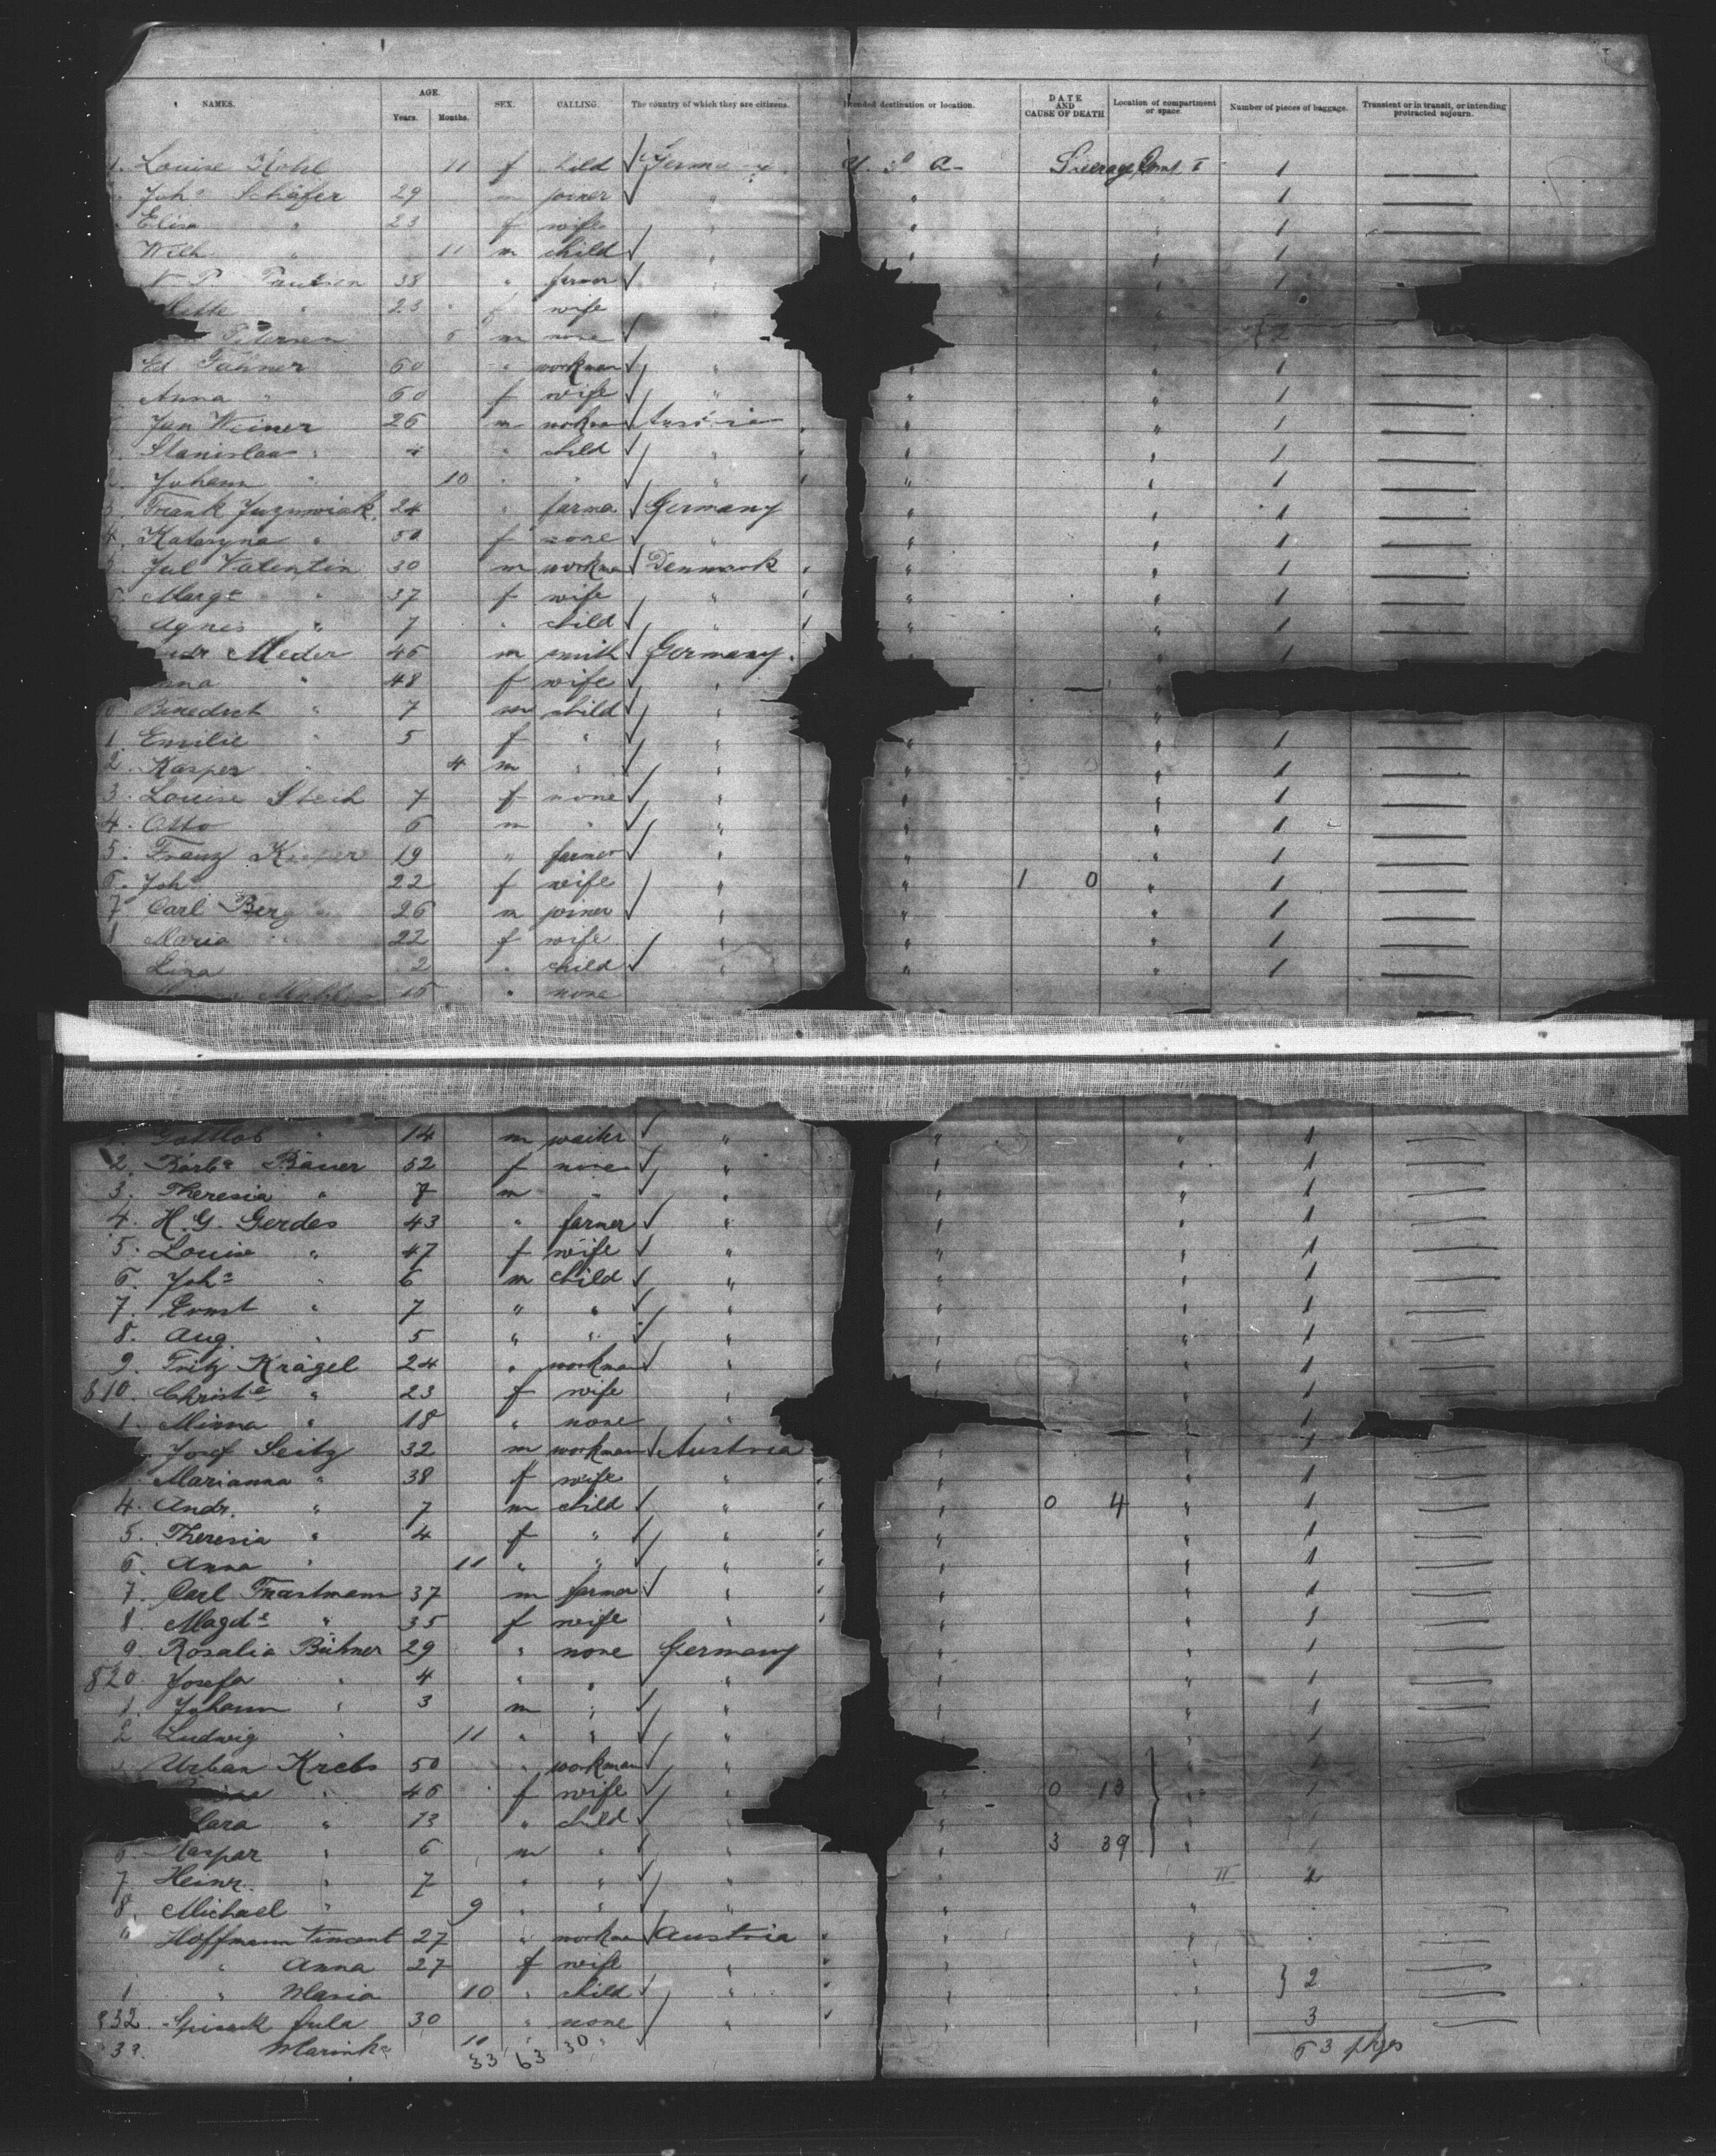 NAMES. AGE. SEX. CALLING. The country of which they are citizens. Intended destination or location. DATE AND CAUSE OF DEATH Location of compartment or space. Number of pieces of baggage. Transient or in transit, or intending protracted sojourn.
Years. Months.
1. Louise Kohl 11 f child Germany U. S. A. Steerage Comp I 1
Joh. Schäfer 29 m joiner " " " 1
Elisa " 23 f wife " " " 1
Wilh. " 11 m child " " " 1
N. P. Paulsen 38 " farmer " " 1
Mette " 23 f wife "
Petersen m none
Ed Fahner 60 " workman " " " 1
Anna " 60 f wife " " " 1
Jan Weiner 26 m workman Austria " " 1
Stanislaus " child " " " 1
Johann " 10 " " " " " 1
3. Frank 24 " farmer Germany " " 1
4. Kataryna " 50 f none " " " 1
Jul Valentin 30 m workman Denmark " " 1
Marge " 37 f wife " " " 1
Agnes " 7 " child " " " 1
Meder 46 m smith Germany " 1
nna " 48 f wife "
Benedict " 7 m child " "
1. Emilie " 5 f " " " " 1
2. Kasper " 4 m " " " " 1
3. Louise Stech 7 f none " " " 1
4. Otto 6 m " " " " 1
5. Franz 19 " farmer " " " 1
6. Joh. 22 f wife " " 1 0 " 1
7. Carl Berg 26 m joiner " " " 1
Maria " 22 f wife " " " 1
Lina 2 " child " " " 1
15 " none
1. Gottlob " 14 m waiter " " " 1
2. Barba Bauer 52 f none " " " 1
3. Theresia " 7 m " " " " 1
4. H. G. Gerdes 43 " farmer " " " 1
5. Louise " 47 f wife " " " 1
6. Joh. " 6 m child " " " 1
7. Ernst " 7 " " " " " 1
8. Aug. " 5 " " " " " 1
9. Fritz Krägel 24 " workman " " " 1
810. Christe " 23 f wife " " " 1
1. Minna " 18 " none " 1
Josef Seitz 32 m workman Austria " " 1
Marianna " 38 f wife " " " 1
4. Andr. " 7 m child " " 0 4 " 1
5. Theresia " 4 f " " " " 1
6. Anna " 11 " " " " " 1
7. Carl 37 m farmer " " " 1
8 Magda " 35 f wife " " " 1
9. Rosalia Bühner 29 " none Germany " " 1
820. Josefa " 4 " " " " " 1
1. Johann " 3 m " " " " 1
2 Ludwig " 11 " " " " " 1
Urban Krebs 50 " workman " " 1
" 46 f wife " " 0 13 " 1
Clara " 13 " child " "
6. Kaspar " 6 m " " " 3 39 "
7. Heinr. " 7 " " " " II
8. Michael " 9 " " " " "
" Hoffmann Vincent 27 " workman Austria " "
" Anna 27 f wife " " "
1 " Maria 10 " child " " " } 2
832. 30 " none " " " 3
10 "
33 63 30 63 pkgs